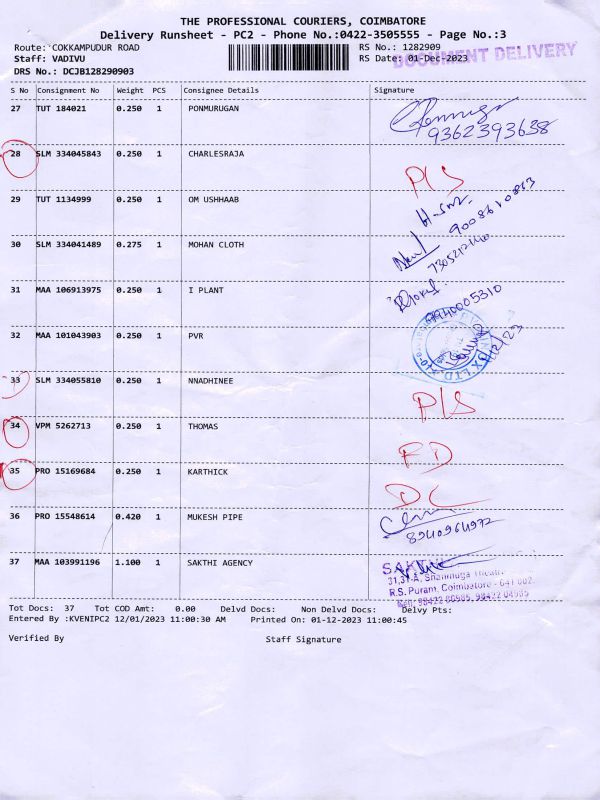 THE PROFESSIONAL COURIERS, COIMBATORE
Delivery Runsheet - PC2 - Phone No.:0422-3505555 - Page No.:3
Route: COKKAMPUDUR ROAD RS No.: 1282909
DOCUMENT DELIVERY
Staff: VADIVU RS Date: 01-Dec-2023
DRS No.: DCJB128290903
S No Consignment No Weight PCS Consignee Details Signature
27 TUT 184021 0.250 1 PONMURUGAN
9362393638
28 SLM 334045843 0.250 1 CHARLESRAJA P/S
29 TUT 1134999 0.250 1 OM USHHAAB
30 SLM 334041489 0.275 1 MOHAN CLOTH
31 MAA 106913975 0.250 1 I PLANT
9940005310
32 MAA 101043903 0.250 1 PVR
33 SLM 334055810 0.250 1 NNADHINEE P/S
34 VPM 5262713 0.250 1 THOMAS FD
35 PRO 15169684 0.250 1 KARTHICK DC
36 PRO 15548614 0.420 1 MUKESH PIPE
37 MAA 103991196 1.100 1 SAKTHI AGENCY
31,31-A, Shanmuga Theatre
R.S. Puram, Coimbatore - 641 002.
Tot Docs: 37 Tot COD Amt: 0.00 Delvd Docs: Non Delvd Docs: Delvy Pts:
Entered By :KVENIPC2 12/01/2023 11:00:30 AM Printed On: 01-12-2023 11:00:45
Verified By Staff Signature